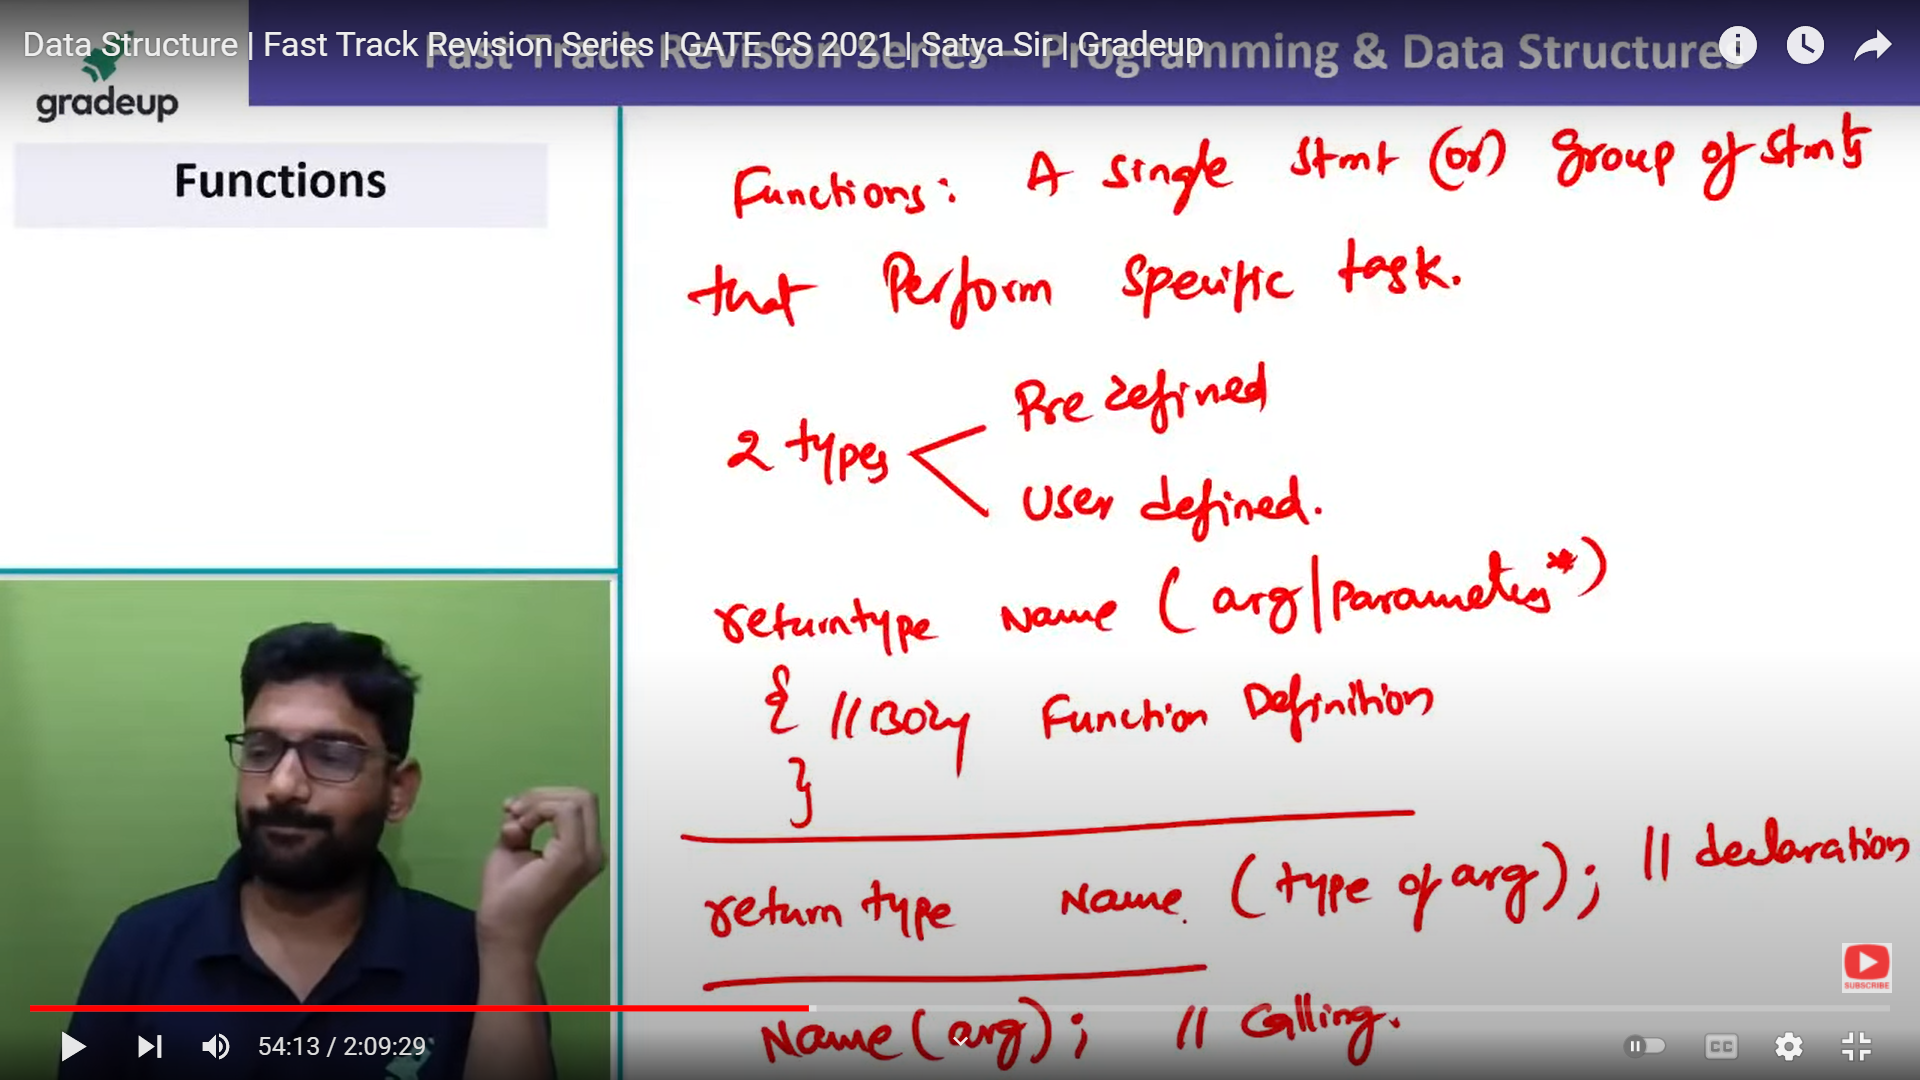 Data Structure | Fast Track Revision Series | GATE CS 2021 | Satya Sir | Gradeup
Fast Track Revision Series – Programming & Data Structures
gradeup
Functions
Functions: A single stmt (or) group of stmts
that Perform specific task.
2 types
Pre defined
User defined.
returntype Name (arg|parameters*)
{ //Body Function Definition
}
return type Name (type of arg); // declaration
Name (arg); // Calling.
SUBSCRIBE
54:13 / 2:09:29
CC